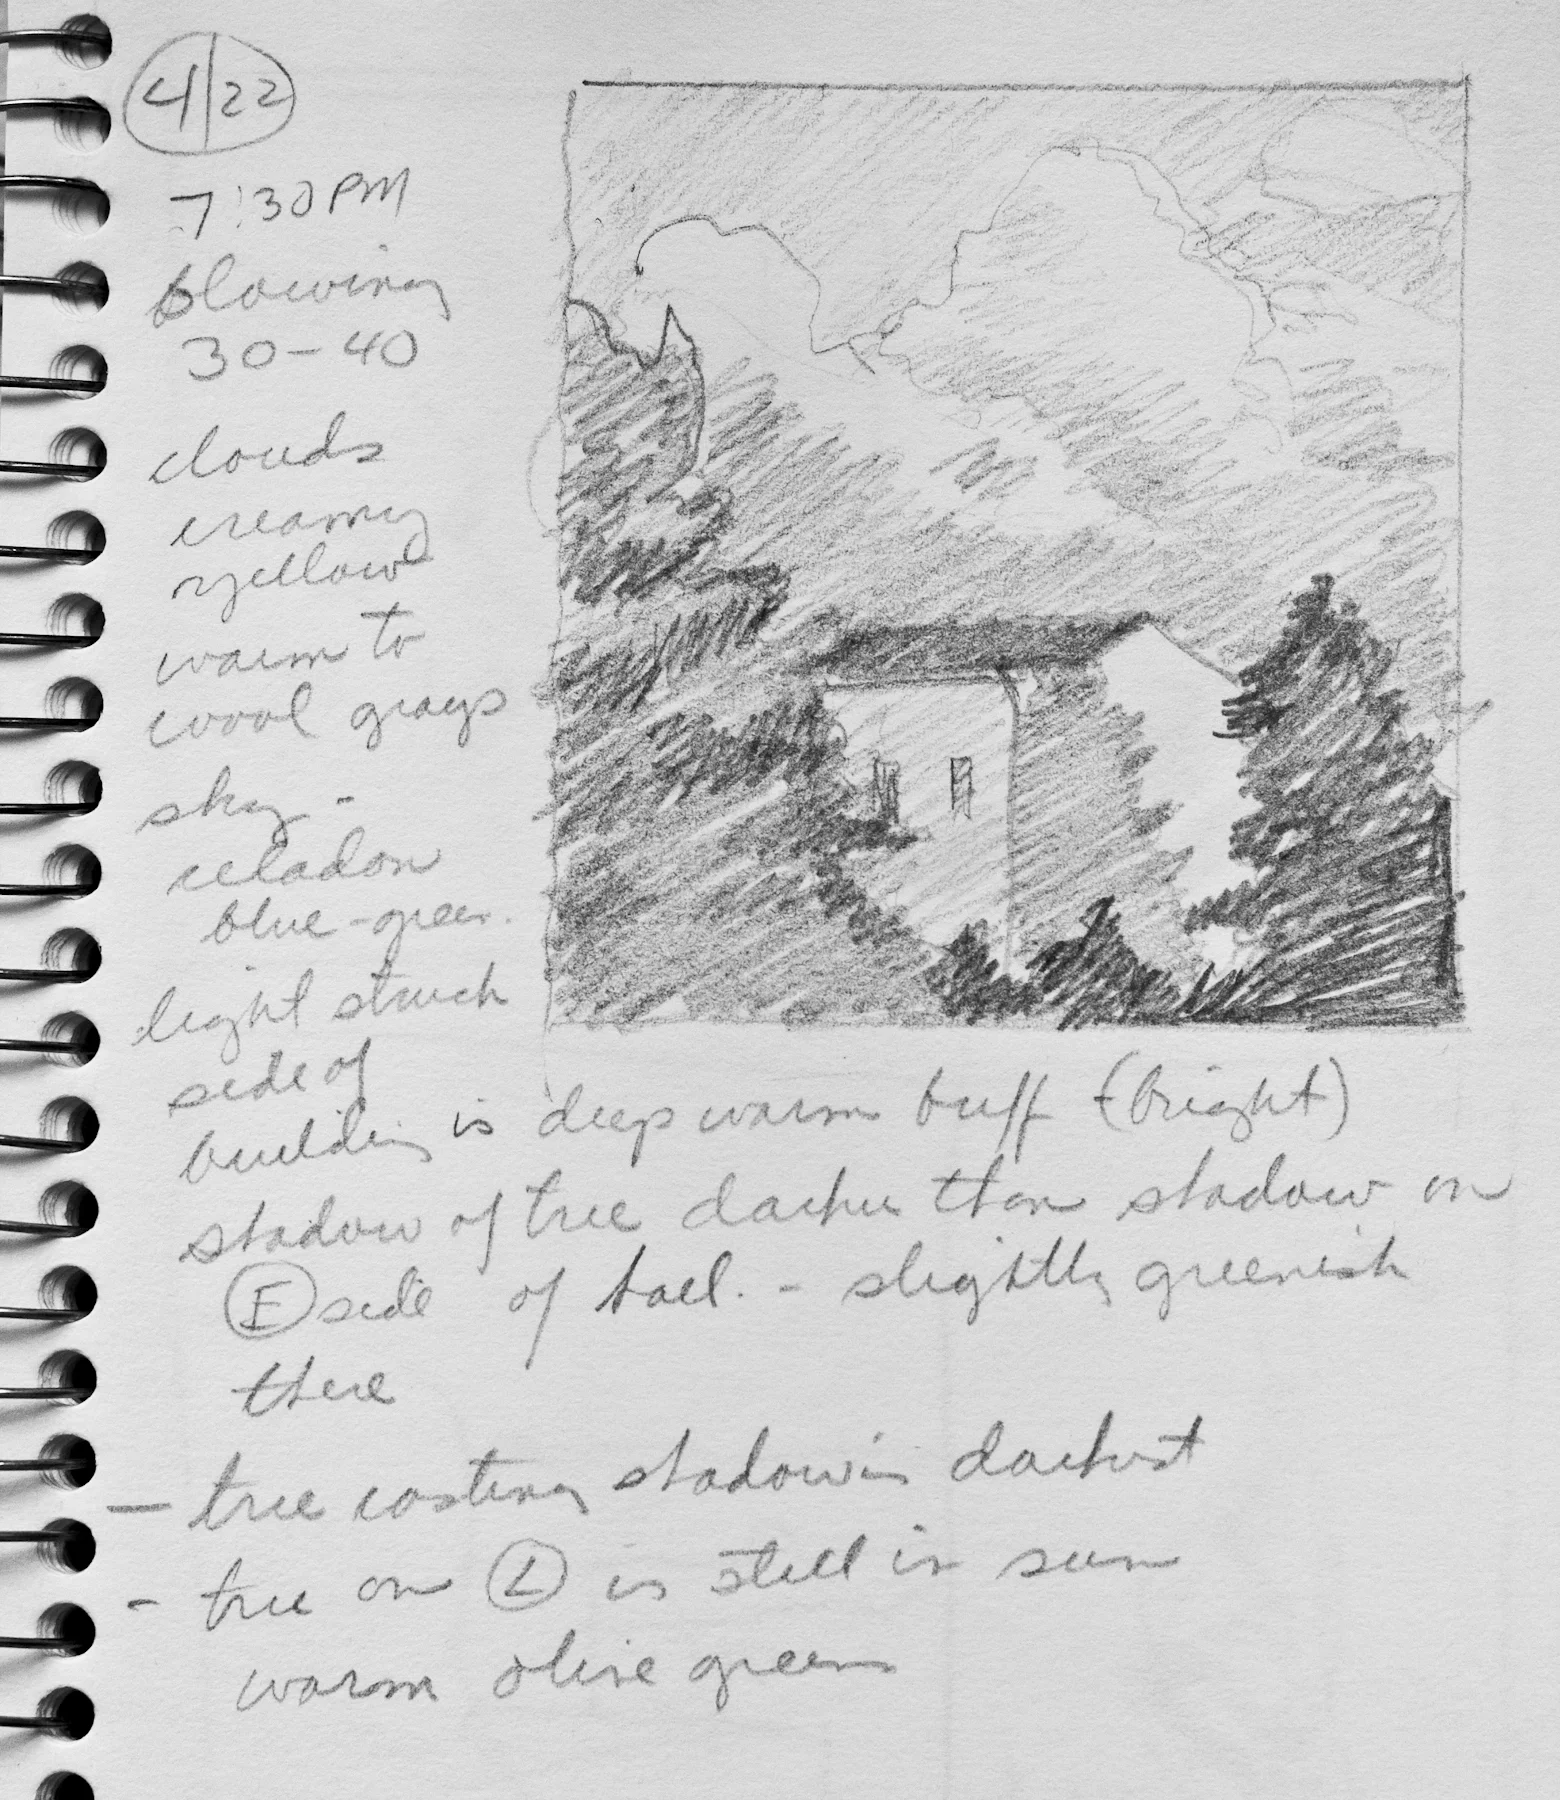 4/22
7:30 PM
blowing
30-40
clouds
creamy
yellow
warm to
cool grays
sky -
celadon
blue-green.
light struck
side of
building is deep warm buff (bright)
shadow of tree darker than shadow on
E side of - slightly greenish
there
— tree casting shadow is darkest
- tree on L is still in sun
warm olive green